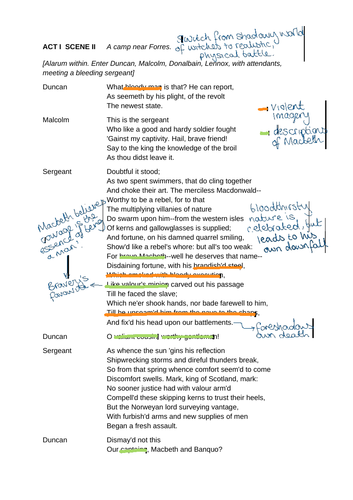 ACT I  SCENE II  A camp near Forres.
Switch from shadowy world
of witches to realistic,
physical battle.
[Alarum within. Enter Duncan, Malcolm, Donalbain, Lennox, with attendants,
meeting a bleeding sergeant]
Duncan What bloody man is that? He can report,
As seemeth by his plight, of the revolt
The newest state.
violent
imagery
descriptions
of Macbeth
Malcolm This is the sergeant
Who like a good and hardy soldier fought
'Gainst my captivity. Hail, brave friend!
Say to the king the knowledge of the broil
As thou didst leave it.
Sergeant Doubtful it stood;
As two spent swimmers, that do cling together
And choke their art. The merciless Macdonwald--
Worthy to be a rebel, for to that
The multiplying villanies of nature
Do swarm upon him--from the western isles
Of kerns and gallowglasses is supplied;
And fortune, on his damned quarrel smiling,
Show'd like a rebel's whore: but all's too weak:
For brave Macbeth--well he deserves that name--
Disdaining fortune, with his brandish'd steel,
Which smoked with bloody execution,
Like valour's minion carved out his passage
Till he faced the slave;
Which ne'er shook hands, nor bade farewell to him,
Till he unseam'd him from the nave to the chaps,
And fix'd his head upon our battlements.
Macbeth believes
courage is the
essence of being
a man!
Bravery's
favourite
bloodthirsty
nature is
celebrated, but
leads to his
own downfall
foreshadows
own death
Duncan O valiant cousin! worthy gentleman!
Sergeant As whence the sun 'gins his reflection
Shipwrecking storms and direful thunders break,
So from that spring whence comfort seem'd to come
Discomfort swells. Mark, king of Scotland, mark:
No sooner justice had with valour arm'd
Compell'd these skipping kerns to trust their heels,
But the Norweyan lord surveying vantage,
With furbish'd arms and new supplies of men
Began a fresh assault.
Duncan Dismay'd not this
Our captains, Macbeth and Banquo?